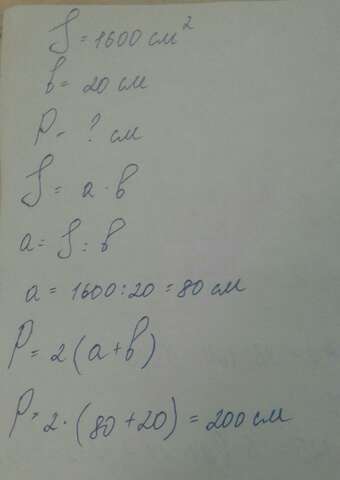 S = 1600 см²
в = 20 см
P - ? см
S = a · в
a = S : в
a = 1600 : 20 = 80 см
P = 2 (a + в)
P = 2 · (80 + 20) = 200 см